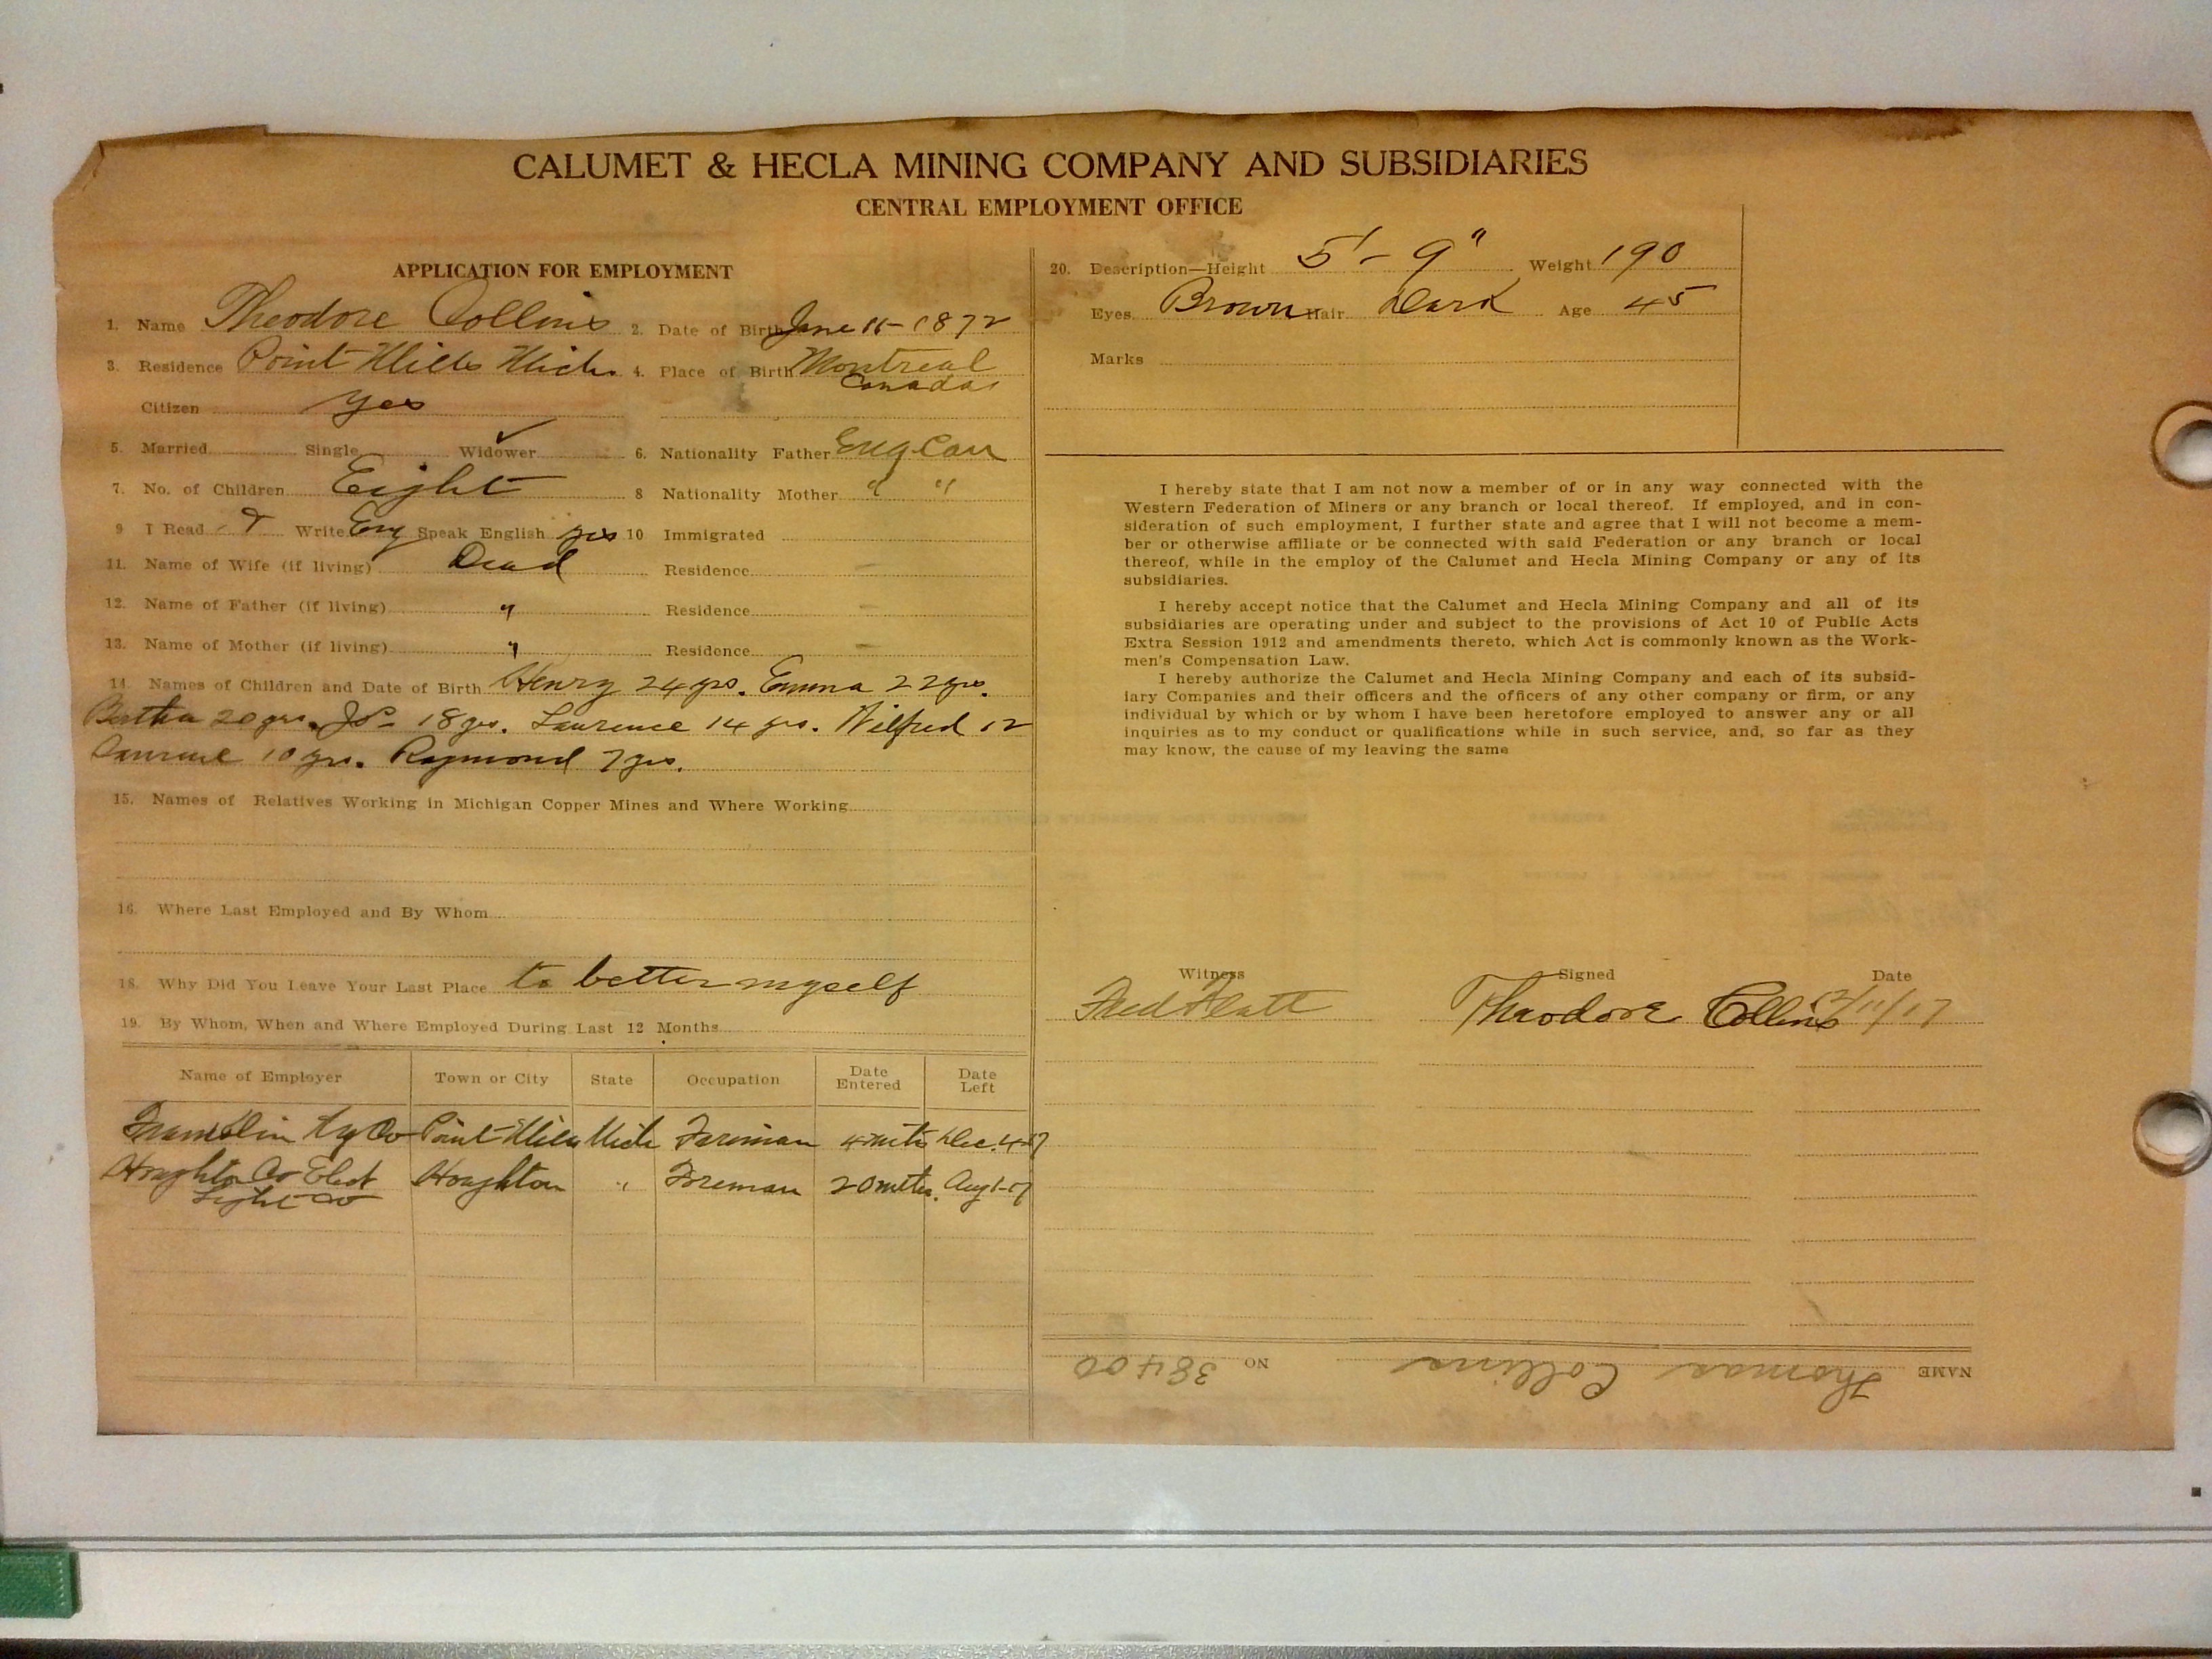 CALUMET & HECLA MINING COMPANY AND SUBSIDIARIES
CENTRAL EMPLOYMENT OFFICE
APPLICATION FOR EMPLOYMENT
1. Name Theodore Collins 2. Date of Birth June 11-1872
3. Residence Point Mills Mich. 4. Place of Birth Montreal
Canada
Citizen yes
5. Married Single Widower ✓ 6. Nationality Father Eng Can
7. No. of Children Eight 8 Nationality Mother " "
9 I Read Write Eng Speak English yes 10 Immigrated
11. Name of Wife (if living) Dead Residence –
12. Name of Father (if living) " Residence –
13. Name of Mother (if living) " Residence –
14. Names of Children and Date of Birth Henry 24 yrs. Emma 22 yrs.
Bertha 20 yrs. Jos 18 yrs. Laurence 14 yrs. Wilfred 12
10 yrs. Raymond 7 yrs.
15. Names of Relatives Working in Michigan Copper Mines and Where Working
16. Where Last Employed and By Whom
18. Why Did You Leave Your Last Place to better myself
19. By Whom, When and Where Employed During Last 12 Months
Name of Employer Town or City State Occupation Date Entered Date Left
Franklin Co Point Mills Mich Foreman 4 mths Dec. 4-17
Houghton Co Elect Houghton " Foreman 20 mths. Aug 1-17
Light Co
20. Description—Height 5'-9" Weight 190
Eyes Brown Hair Dark Age 45
Marks
I hereby state that I am not now a member of or in any way connected with the
Western Federation of Miners or any branch or local thereof. If employed, and in con-
sideration of such employment, I further state and agree that I will not become a mem-
ber or otherwise affiliate or be connected with said Federation or any branch or local
thereof, while in the employ of the Calumet and Hecla Mining Company or any of its
subsidiaries.
I hereby accept notice that the Calumet and Hecla Mining Company and all of its
subsidiaries are operating under and subject to the provisions of Act 10 of Public Acts
Extra Session 1912 and amendments thereto, which Act is commonly known as the Work-
men's Compensation Law.
I hereby authorize the Calumet and Hecla Mining Company and each of its subsid-
iary Companies and their officers and the officers of any other company or firm, or any
individual by which or by whom I have been heretofore employed to answer any or all
inquiries as to my conduct or qualifications while in such service, and, so far as they
may know, the cause of my leaving the same
Witness Signed Date
Fred Theodore Collins 12/11/17
NAME Thomas Collins NO 38400